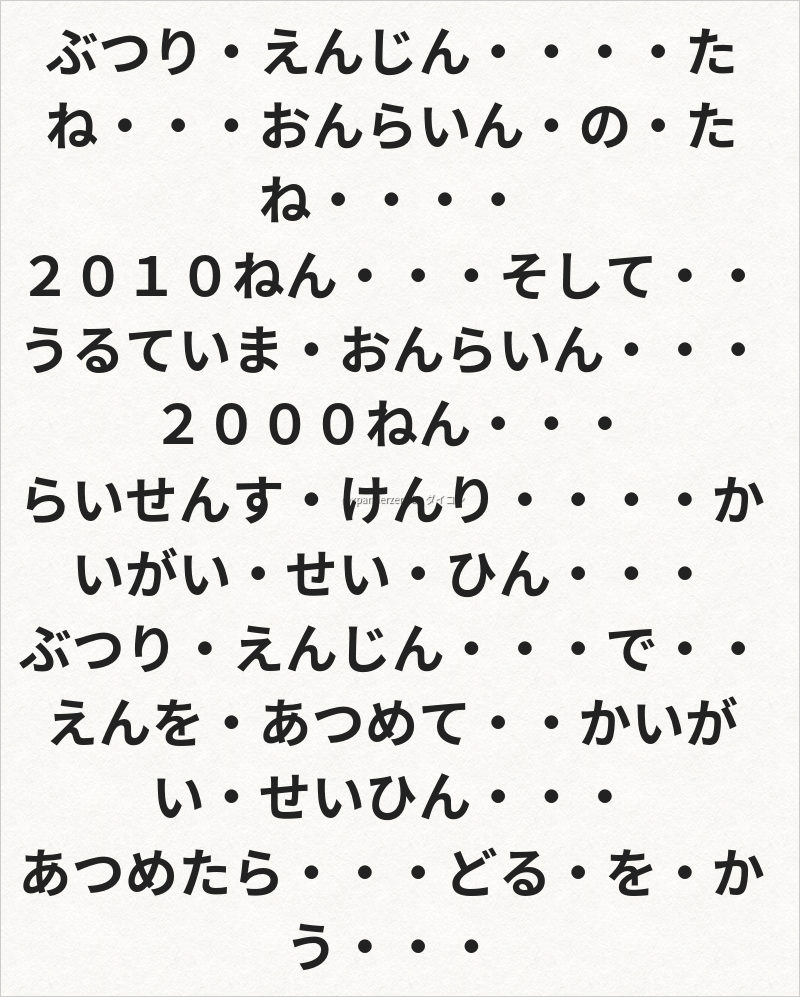 ぶつり・えんじん・・・・た
ね・・・おんらいん・の・た
ね・・・・
２０１０ねん・・・そして・・
うるていま・おんらいん・・・
２０００ねん・・・
らいせんす・けんり・・・・か
いがい・せい・ひん・・・
ぶつり・えんじん・・・で・・
えんを・あつめて・・かいが
い・せいひん・・・
あつめたら・・・どる・を・か
う・・・